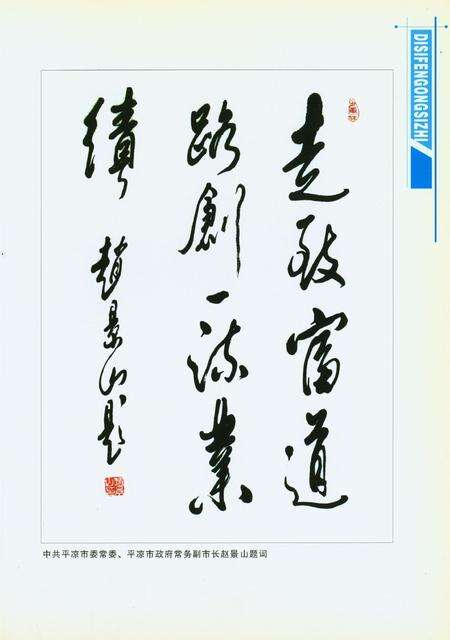 DISIFENGONGSIZHI
走致富道
路創一流業
績
趙景山題
中共平凉市委常委、平凉市政府常务副市长赵景山题词